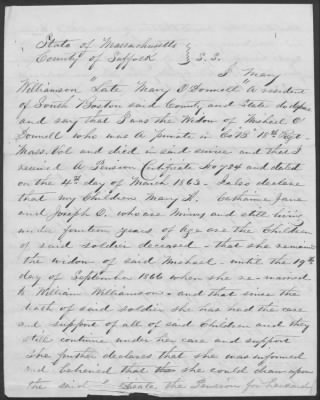 State of Massachusetts
County of Suffolk } S.S.
I Mary
Williamson "Late Mary O Donnell" A resident
of South Boston said County and State do depose
and say that I was the Widow of Michael O
Donnell who was A private in Co "B" 18th Regt.
Mass Vol and died in said service and that I
received A Pension Certificate No 724 and dated
on the 4th day of March 1863 - I also declare
that my Children Mary A. Catharine Jane
and Joseph O. who are Minors and still living
under fourteen years of Age are the Children
of said soldier deceased - that she remained
the widow of said Michael until the 19th
day of September 1866 when she re-married
to William Williamson - and that since the
death of said soldier she has had the care
and support of all of said Children and they
still continue under her care and support
She further declares that she was informed
and believed that she could draw upon
the said the Pension for herself